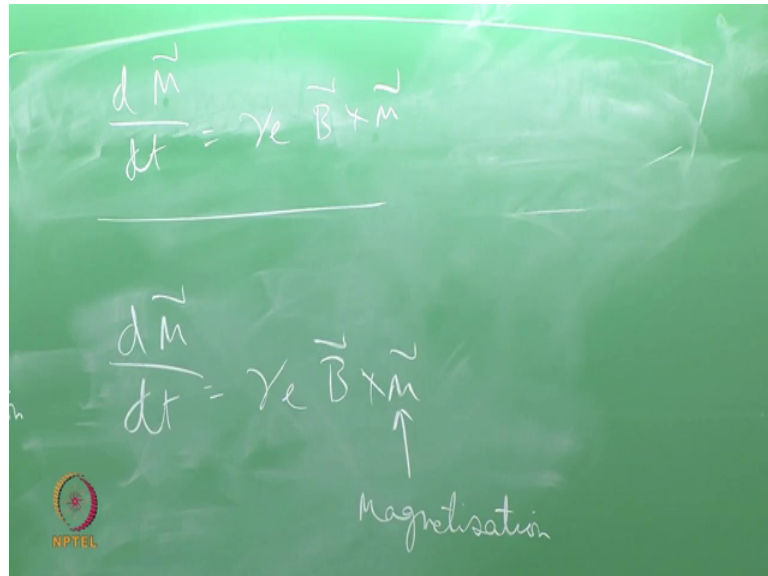 d M⃗ / dt = γe B⃗ × M⃗
d M⃗ / dt = γe B⃗ × M⃗
Magnetisation
NPTEL